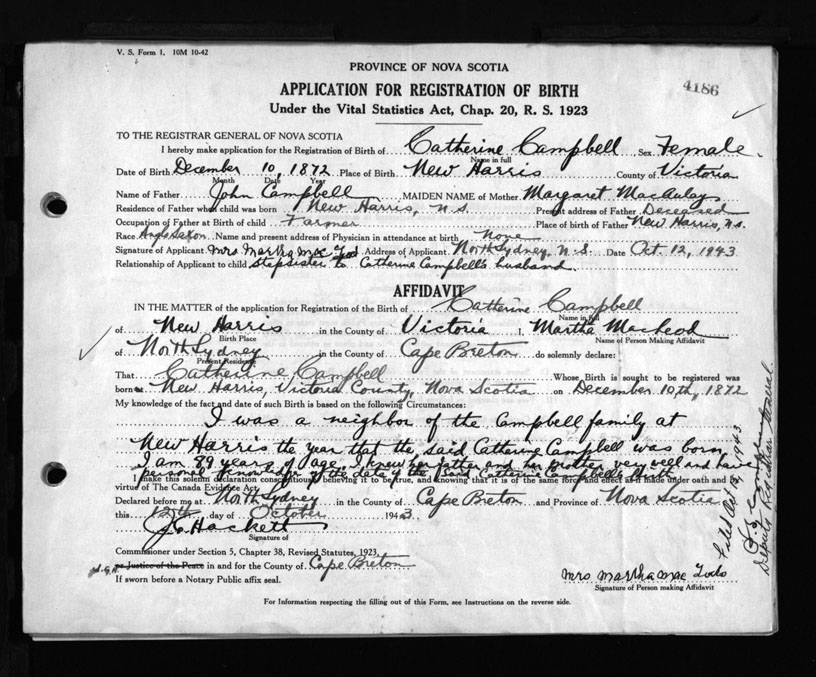 V. S. Form 1. 10M 10-42
PROVINCE OF NOVA SCOTIA
4186
APPLICATION FOR REGISTRATION OF BIRTH
Under the Vital Statistics Act, Chap. 20, R. S. 1923
TO THE REGISTRAR GENERAL OF NOVA SCOTIA
I hereby make application for the Registration of Birth of Catherine Campbell Sex Female
Name in full
Date of Birth December 10, 1872 Place of Birth New Harris County of Victoria
Month Date Year
Name of Father John Campbell MAIDEN NAME of Mother Margaret MacAulay
Residence of Father when child was born New Harris, N.S. Present address of Father Deceased
Occupation of Father at Birth of child Farmer Place of birth of Father New Harris, N.S.
Race Anglo Saxon Name and present address of Physician in attendance at birth None
Signature of Applicant Mrs Martha Mac Address of Applicant North Sydney, N.S. Date Oct. 12, 1943
Relationship of Applicant to child Stepsister to Catherine Campbell's husband
AFFIDAVIT
IN THE MATTER of the application for Registration of the Birth of Catherine Campbell
Name in full
of New Harris in the County of Victoria I, Martha MacLeod
Birth Place Name of Person Making Affidavit
of North Sydney in the County of Cape Breton do solemnly declare:
Present Residence
That Catherine Campbell Whose Birth is sought to be registered was
born New Harris, Victoria County, Nova Scotia on December 10th, 1872
My knowledge of the fact and date of such Birth is based on the following Circumstances:
I was a neighbor of the Campbell family at
New Harris the year that the said Catherine Campbell was born
I am 89 years of age. I knew her father and her mother very well and have
personal knowledge of the date of the said Catherine Campbell's birth
I make this solemn declaration conscientiously believing it to be true, and knowing that it is of the same force and effect as if made under oath and by
virtue of The Canada Evidence Act.
Declared before me at North Sydney in the County of Cape Breton and Province of Nova Scotia
this 12th day of October 1943
J. G. Hackett
Signature of
Commissioner under Section 5, Chapter 38, Revised Statutes, 1923,
J.G.H. or Justice of the Peace in and for the County of Cape Breton
If sworn before a Notary Public affix seal.
Mrs Martha Mac
Signature of Person making Affidavit
For Information respecting the filling out of this Form, see Instructions on the reverse side.
Filed Oct 1943
Deputy Registrar General.